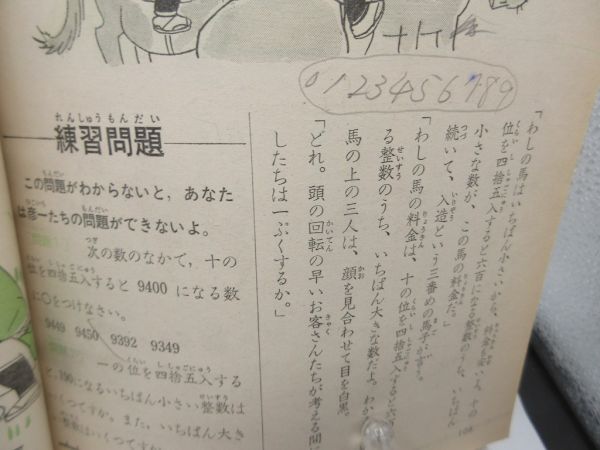 0123456789
「わしの馬はいちばん小さいから、料金も安いよ。十の
位を四捨五入すると六百になる整数のうち、いちばん
小さな数が、この馬の料金だ。」
続いて、入造という三番めの馬子が言う。
「わしの馬の料金は、十の位を四捨五入すると六百
る整数のうち、いちばん大きな数だよ。わか
馬の上の三人は、顔を見合わせて目を白黒。
「どれ。頭の回転の早いお客さんたちが考える間に
したちは一ぷくするか。」
練習問題
この問題がわからないと，あなた
は彦一たちの問題ができないよ。
次の数のなかで，十の
位を四捨五入すると 9400 になる数
に○をつけなさい。
9449 9450 9392 9349
一の位を四捨五入する
と，100になるいちばん小さい整数は
くつですか。また，いちばん大き
数はいくつですか
108